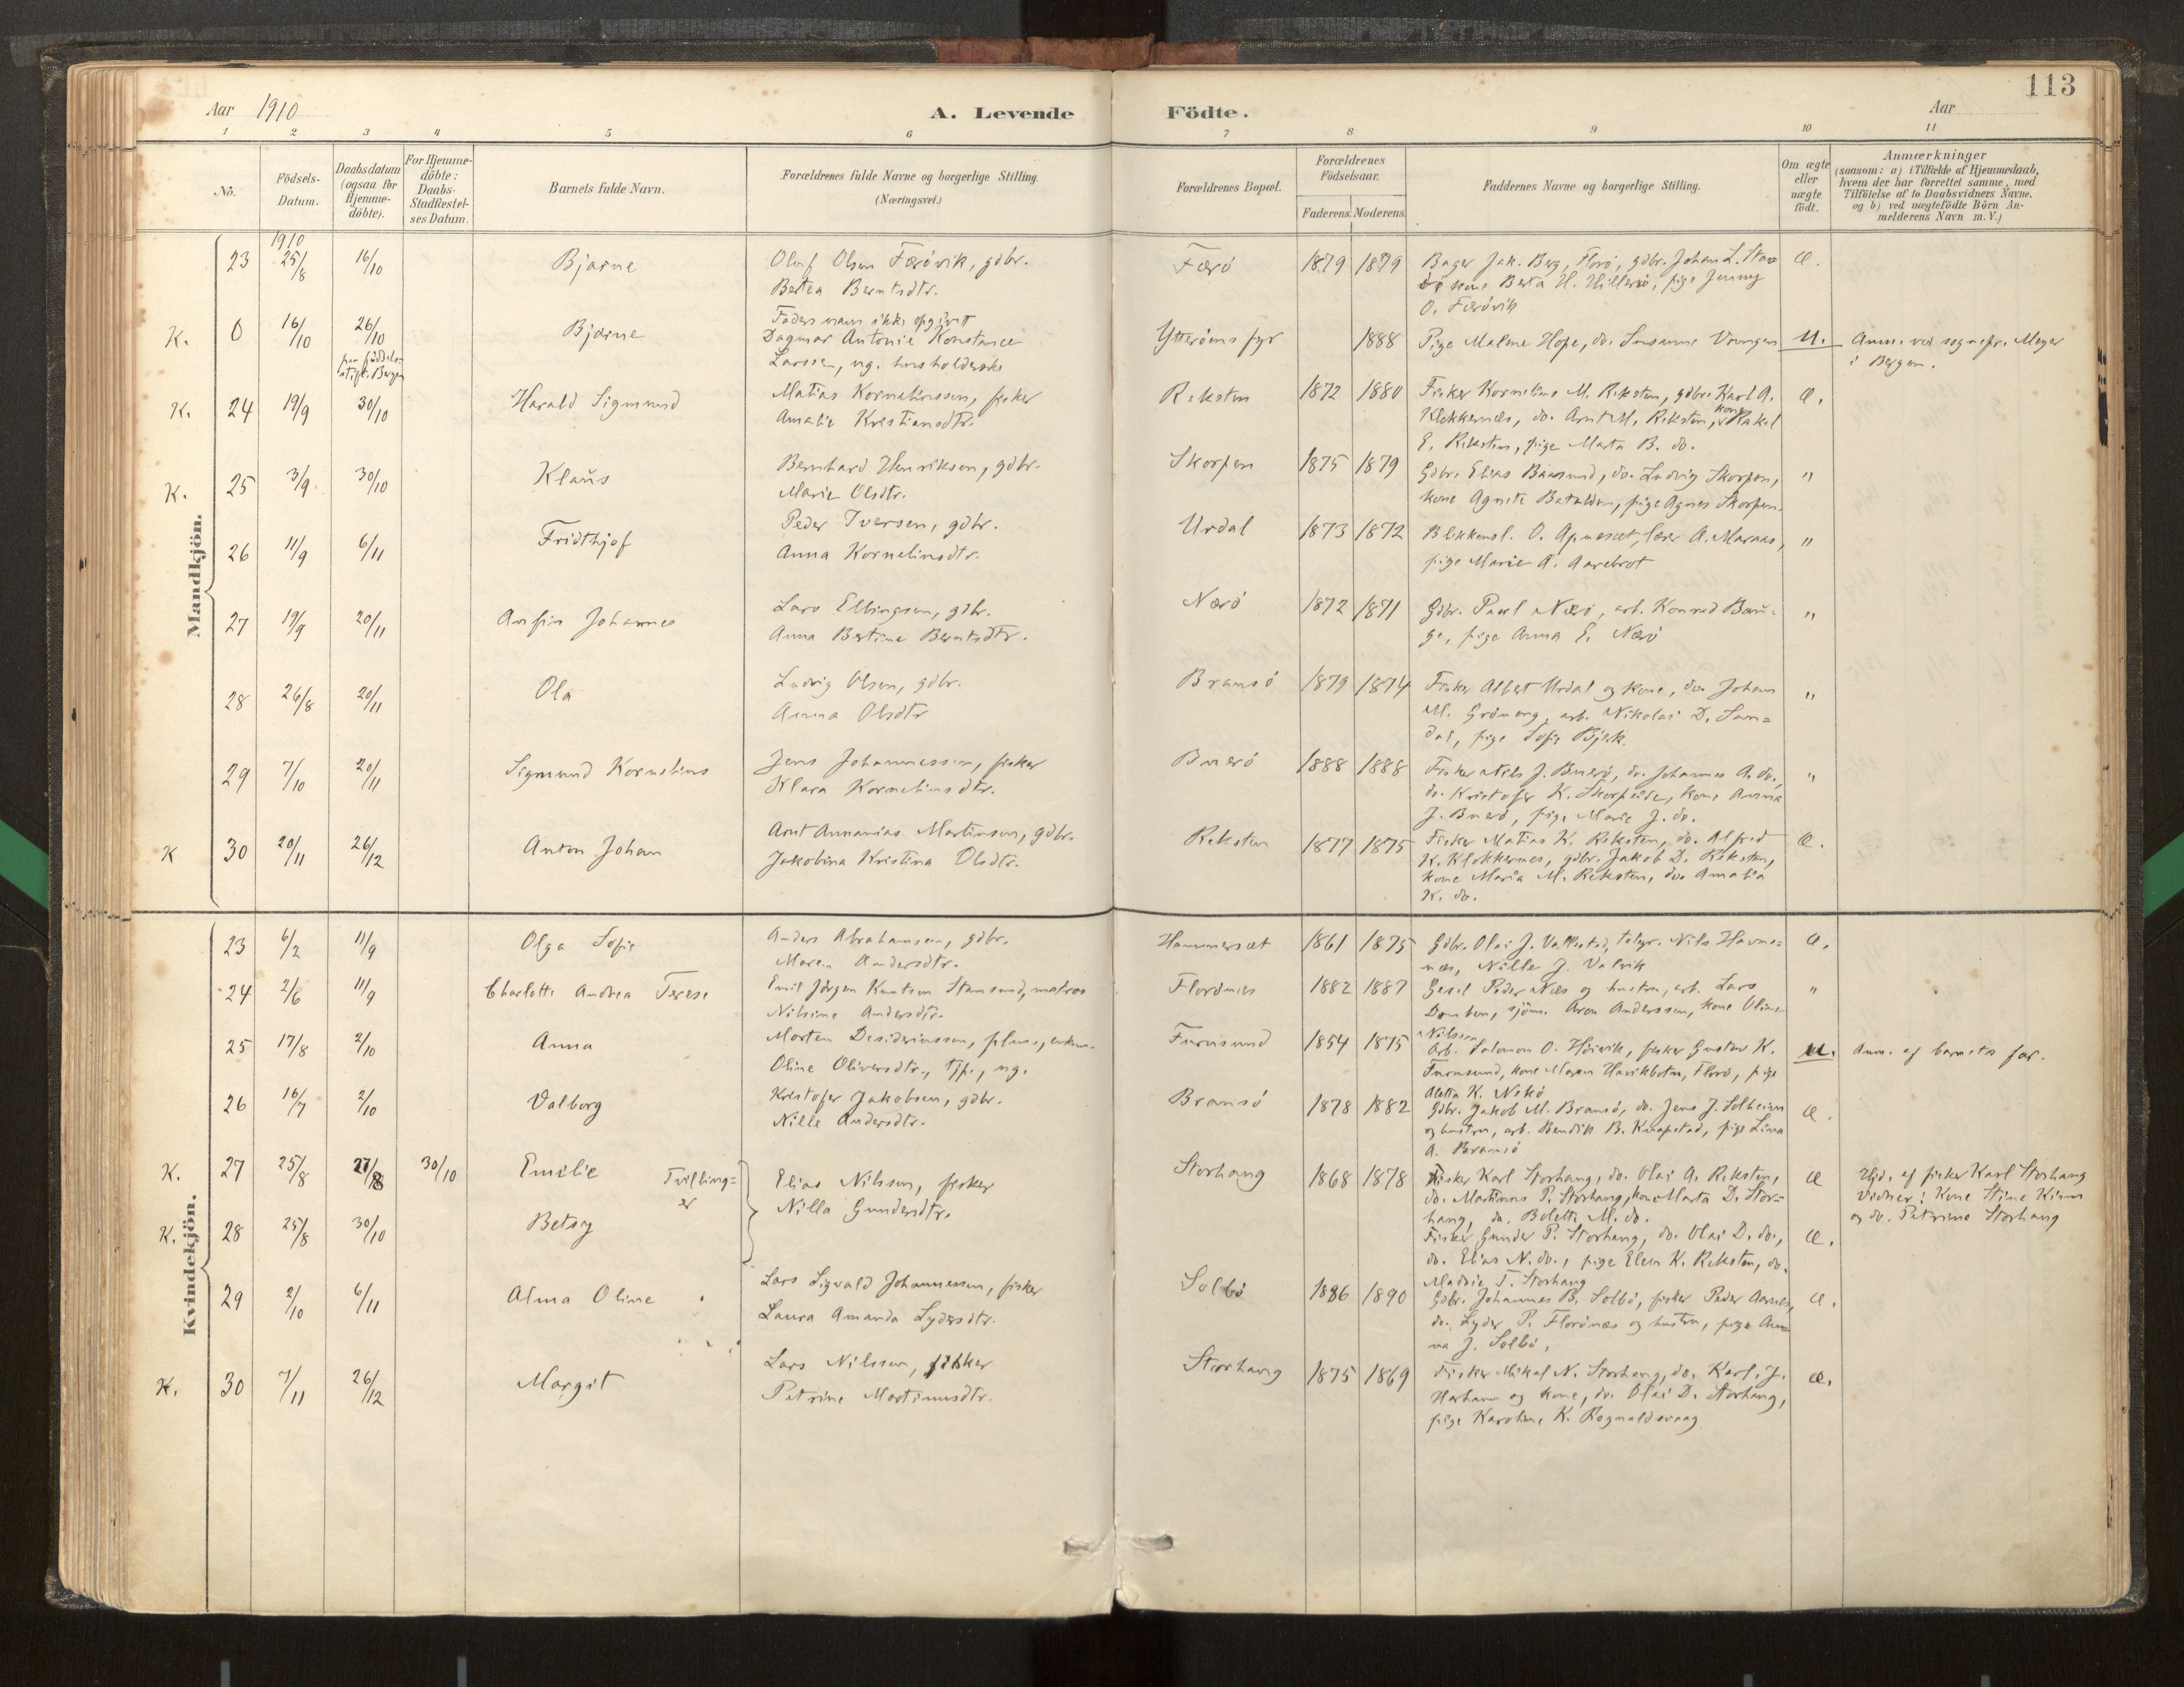 113
Aar 1910
A. Levende Födte.
Aar
1 2 3 4 5 6 7 8 9 10 11
No.
Födsels-Datum.
Daabsdatum (ogsaa for Hjemme-döbte).
For Hjemme-döbte: Daabs-Stadfæstel-ses Datum.
Barnets fulde Navn.
Forældrenes fulde Navne og borgerlige Stilling.
(Næringsvei.)
Forældrenes Bopæl.
Forældrenes Födselsaar.
Faderens. Moderens.
Faddernes Navne og borgerlige Stilling.
Om ægte eller uægte födt.
Anmærkninger
(saasom: a) i Tilfælde af Hjemmedaab,
hvem der har forrettet samme, med
Tilföielse af to Daabsvidners Navne,
og b) ved uægtefödte Börn An-
melderens Navn m. V.)
Mandkjön.
1910
23 25/8 16/10 Bjarne Olaf Olsen Færövik, gdbr. Færö 1879 1879 Bager Jak. Berg, Florö, gdbr. Johan L. Stav Æ.
Bertea Berntsdtr. kone Berta H. Hillersö, pige Jenny
O. Færövik
K. 0 16/10 26/10 Bjarne Faders navn ikke opgivet
Dagmar Antonie Konstance Ytteröens fyr 1888 Pige Malene Hope, do. Susanne Vaagen U. Anm. ved sognepr. Meyer
Larssen, ug. husholderske i Bergen.
paa födsels-
stift. Bergen
K. 24 19/9 30/10 Harald Sigmund Matias Korneliussen, fisker Reksten 1872 1880 Fisker Kornelius M. Reksten, gdbr. Karl A. Æ.
Amalie Kristiansdtr. Klokkernæs, do. Arnt M. Reksten, kone Rakel
E. Reksten, pige Marta B. do.
K. 25 3/9 30/10 Klaus Bernhard Henriksen, gdbr. Skorpen 1875 1879 Gdbr. Elias Baasund, do. Ludvig Skorpen, "
Marie Olsdtr. kone Agnete Batalden, pige Agnes Skorpen.
26 11/9 6/11 Fridthjof Peder Iversen, gdbr. Urdal 1873 1872 Blikkensl. O. Apneset, lærer A. Maraas, "
Anna Korneliusdtr. pige Marie A. Aarebrot
27 19/9 20/11 Anfin Johannes Lars Ellingsen, gdbr. Nærö 1872 1871 Gdbr. Paul Nærö, arb. Konrad Bau- "
Anna Bertine Berntsdtr. ge, pige Anna E. Nærö
28 26/8 20/11 Ola Ludvig Olsen, gdbr. Bramsö 1879 1874 Fisker Albert Urdal og kone, do. Johan "
Anna Olsdtr M. Gröneng, arb. Nikolai D. San=
dal, pige Sofie Bjerk.
29 7/10 20/11 Sigmund Kornelius Jens Johannessen, fisker Buerö 1888 1888 Fisker Nils J. Buerö, do. Johannes A. do., "
Klara Korneliusdtr. do. Kristofer K. Skorpeide, kone Anna
J. Buerö, pige Marie J. do.
K 30 20/11 26/12 Anton Johan Arnt Annanias Martinsen, gdbr. Reksten 1877 1875 Fisker Matias K. Reksten, do. Alfred Æ.
Jakobina Kristina Olsdtr. K. Klokkernes, gdbr. Jakob D. Reksten,
kone Maria M. Reksten, do. Amalia
K. do.
Kvindekjön.
23 6/2 11/9 Olga Sofie Anders Abrahamsen, gdbr. Hammerset 1861 1875 Gdbr. Olai J. Vallestad, telegr. Nils Havne= Æ.
Maren Andersdtr. næs, Nille J. Valvik
24 2/6 11/9 Charlotte Andrea Terese Emil Jörgen Knutsen Stamsund, matros Florönæs 1882 1887 Gesel Peder Næs og hustru, arb. Lars "
Nilsine Andersdtr. Domben, sjöm. Aron Anderssen, kone Oline
Nilssen
25 17/8 2/10 Anna Morten Desideriussen, pladsm., enkem. Furusund 1854 1875 Arb. Salomon O. Höivik, fisker Gustav K. U. Anm. af barnets far.
Oline Oliversdtr., tjp., ug. Furusund, kone Maren Havikbotn, Florö, pige
Aletta K. Nekö
26 16/7 2/10 Valborg Kristofer Jakobsen, gdbr. Bramsö 1878 1882 Gdbr. Jakob M. Bramsö, do. Jens J. Solheim Æ.
Nille Andersdtr. og hustru, arb. Bendik B. Knapstad, pige Lina
A. Bramsö
K. 27 25/8 27/8 30/10 Emilie Tvilling=er Elias Nilssen, fisker Storhaug 1868 1878 Fisker Karl Storhaug, do. Olai A. Reksten, Æ Hjd. af fisker Karl Storhaug
Nilla Gundersdtr. do. Martinus P. Storhaug, kone Marta D. Stor= Vidner: Kone Stine Kinn
haug, do. Bolette M. do. og do. Petrine Storhaug
K. 28 25/8 30/10 Betsy Fisker Gunder P. Storhaug, do. Olai D. do., Æ.
do. Elias N. do., pige Elen K. Reksten, do.
Madsie T. Storhaug
29 2/10 6/11 Alma Oline Lars Sigvald Johannessen, fisker Solbö 1886 1890 Gdbr. Johannes B. Solbö, fisker Peder Aarnes, Æ.
Laura Amanda Lydersdtr. do. Lyder P. Florönæs og hustru, pige An=
na J. Solbö.
K. 30 7/11 26/12 Margit Lars Nilssen, fisker Storhaug 1875 1869 Fisker Mikal N. Storhaug, do. Karl J. Æ.
Petrine Martinusdtr. Horhavn og kone, do. Olai D. Storhaug,
pige Karoline K. Rognaldsvaag